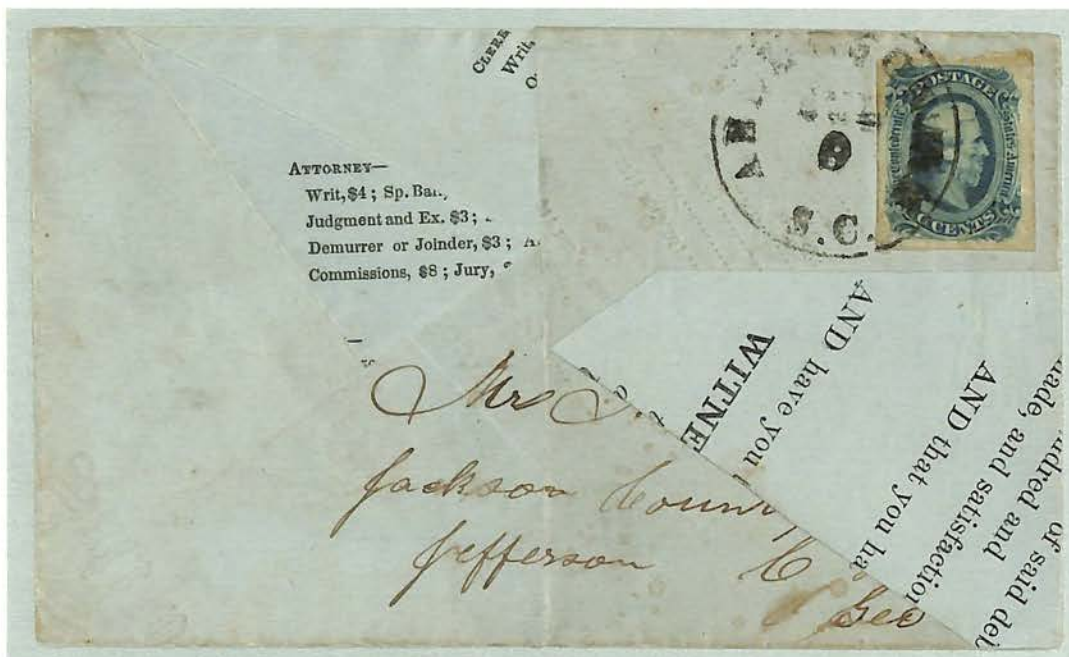 CLERK
Writ,
ATTORNEY—
Writ, $4 ; Sp. Bail,
Judgment and Ex. $3 ;
Demurrer or Joinder, $3 ;
Commissions, $8 ; Jury,
S.C.
POSTAGE
Confederate States America
CENTS
WITNE
AND have you
AND that you ha
made, and satisfaction
ndred and
of said deb
Mrs
Jackson County
Jefferson
Geo